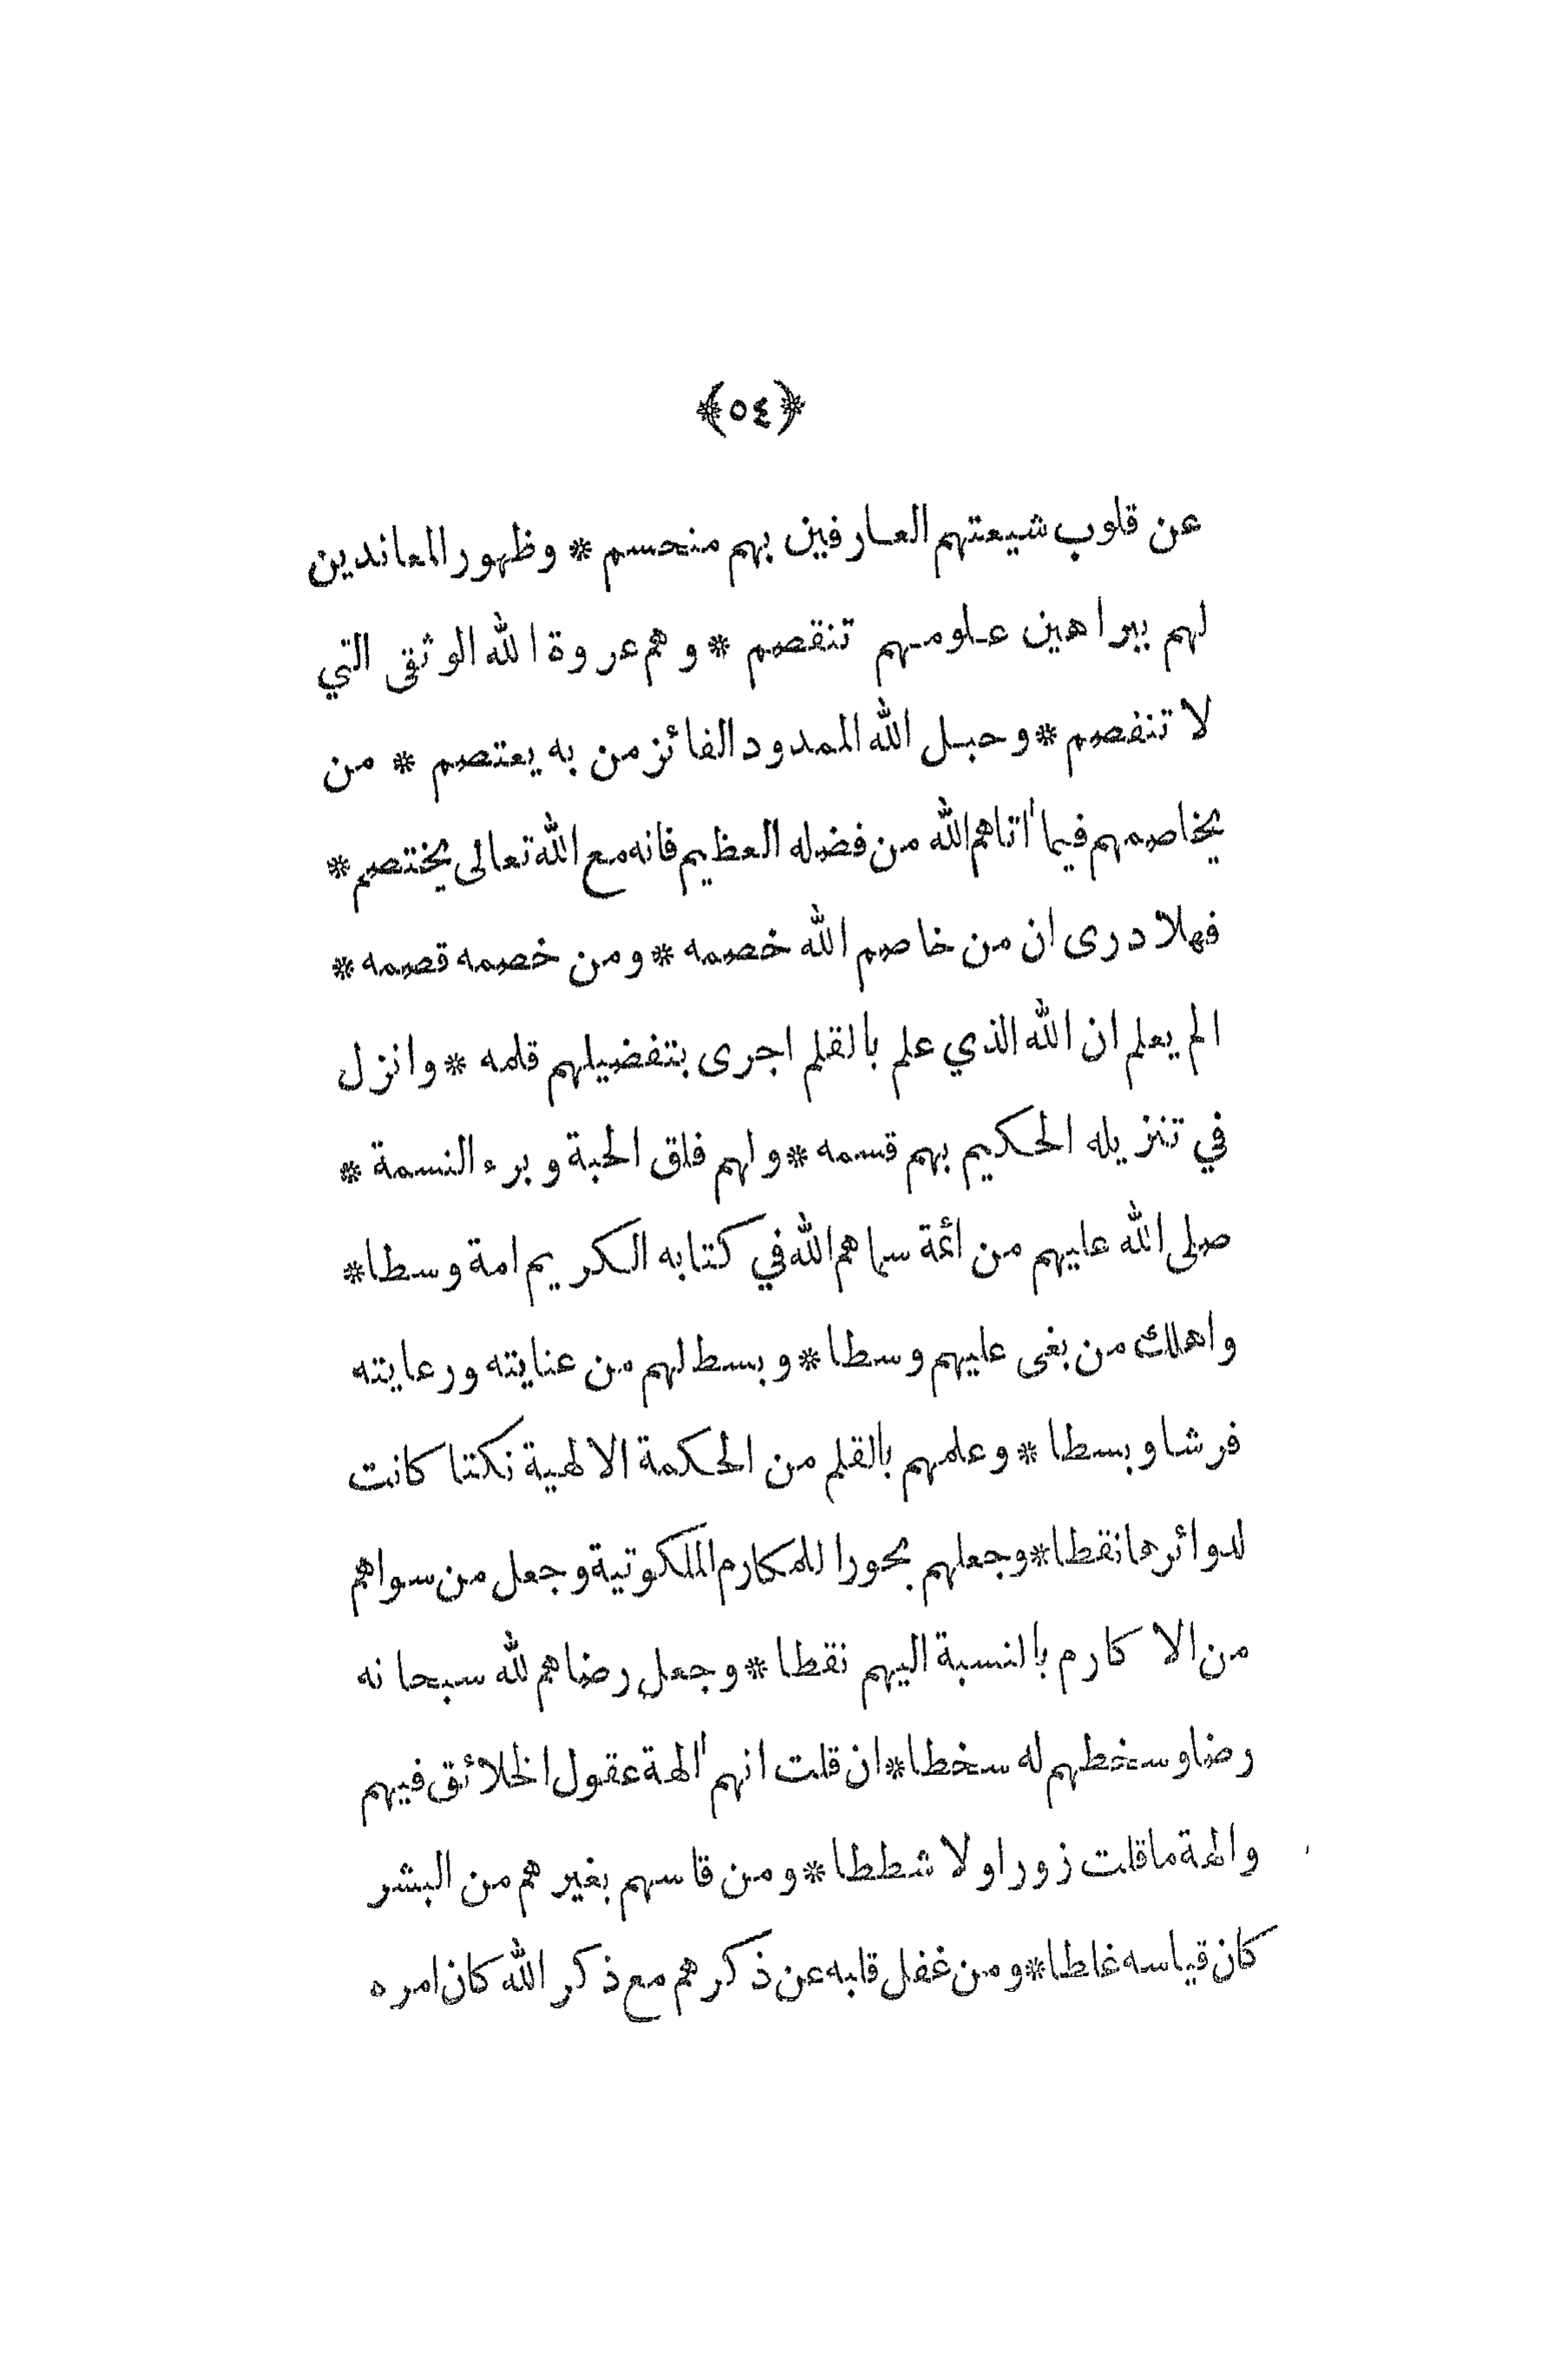 ﴿٥٤﴾
عن قلوب شيعتهم العارفين بهم منحسم * وظهور المعاندين
لهم ببراهين علومهم تنقصم * وهم عروة الله الوثقى التي
لا تنفصم * وحبل الله الممدود الفائز من به يعتصم * من
يخاصمهم فيما اٰتاهم الله من فضله العظيم فانه مع الله تعالى يختصم *
فهلا درى ان من خاصم الله خصمه * ومن خصمه قصمه *
الم يعلم ان الله الذي علم بالقلم اجرى بتفضيلهم قلمه * وانزل
في تنزيله الحكيم بهم قسمه * ولهم فلق الحبة وبرء النسمة *
صلى الله عليهم من ائمة سماهم الله في كتابه الكريم امة وسطا *
واهلك من بغى عليهم وسطا * وبسط لهم من عنايته ورعايته
فرشا وبسطا * وعلمهم بالقلم من الحكمة الالهية نكتا كانت
لدوائرها نقطا * وجعلهم بحورا للمكارم الملكوتية وجعل من سواهم
من الاكارم بالنسبة اليهم نقطا * وجعل رضاهم لله سبحانه
رضا وسخطهم له سخطا * ان قلت انهم اٰلهة عقول الخلائق فيهم
والهة ما قلت زورا ولا شططا * ومن قاسهم بغيرهم من البشر
كان قياسه غلطا * ومن غفل قلبه عن ذكرهم مع ذكر الله كان امره